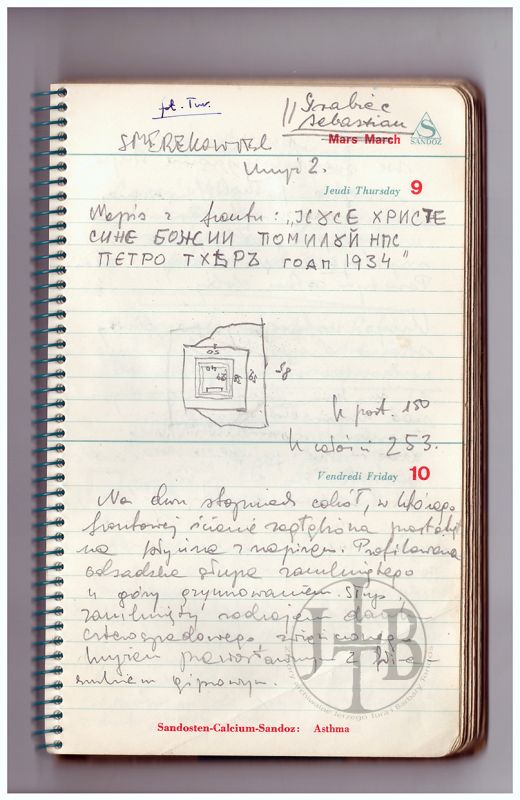 pł. Tur.
// Grabiec
Sebastian
Mars March
SANDOZ
SMEREKOWIEC
krzyż 2.
Jeudi Thursday 9
Napis z frontu: „ІСУСЕ ХРИСТЕ
СИНЕ БОЖИИ ПОМИЛУЙ НПС
ПЕТРО ТХѢРЪ ГОДП 1934"
50
40
58
h post. 150
h całości 253.
Vendredi Friday 10
Na dwu stopniach cokół, w którego
frontowej ścianie zagłębiona prostokątna
płycina z napisem. Profilowana
odsadzka słupa zamkniętego
u góry gzymsowaniem. Słup
zamknięty rodzajem daszku
czterospadowego zwieńczonego
krzyżem prawosławnym z
gipsowym.
JTB
Sandosten-Calcium-Sandoz: Asthma